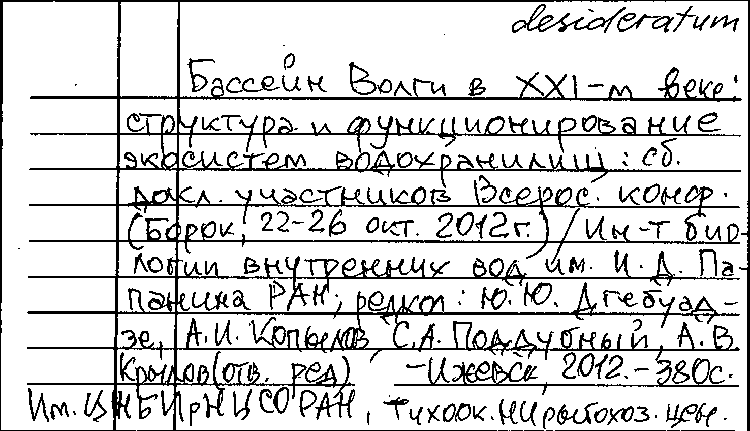 desideratum
Бассейн Волги в XXI-м веке:
структура и функционирование
экосистем водохранилищ: сб.
докл. участников Всерос. конф.
(Борок, 22-26 окт. 2012г.) / Ин-т био-
логии внутренних вод им. И.Д. Па-
панина РАН; редкол: Ю.Ю. Дгебуад-
зе, А.И. Копылов, С.А. Поддубный, А.В.
Крылов (отв. ред) -Ижевск, 2012.-380с.
Им. ЦНБ ИрНЦ СО РАН, Тихоок. НИ рыбохоз. цен.